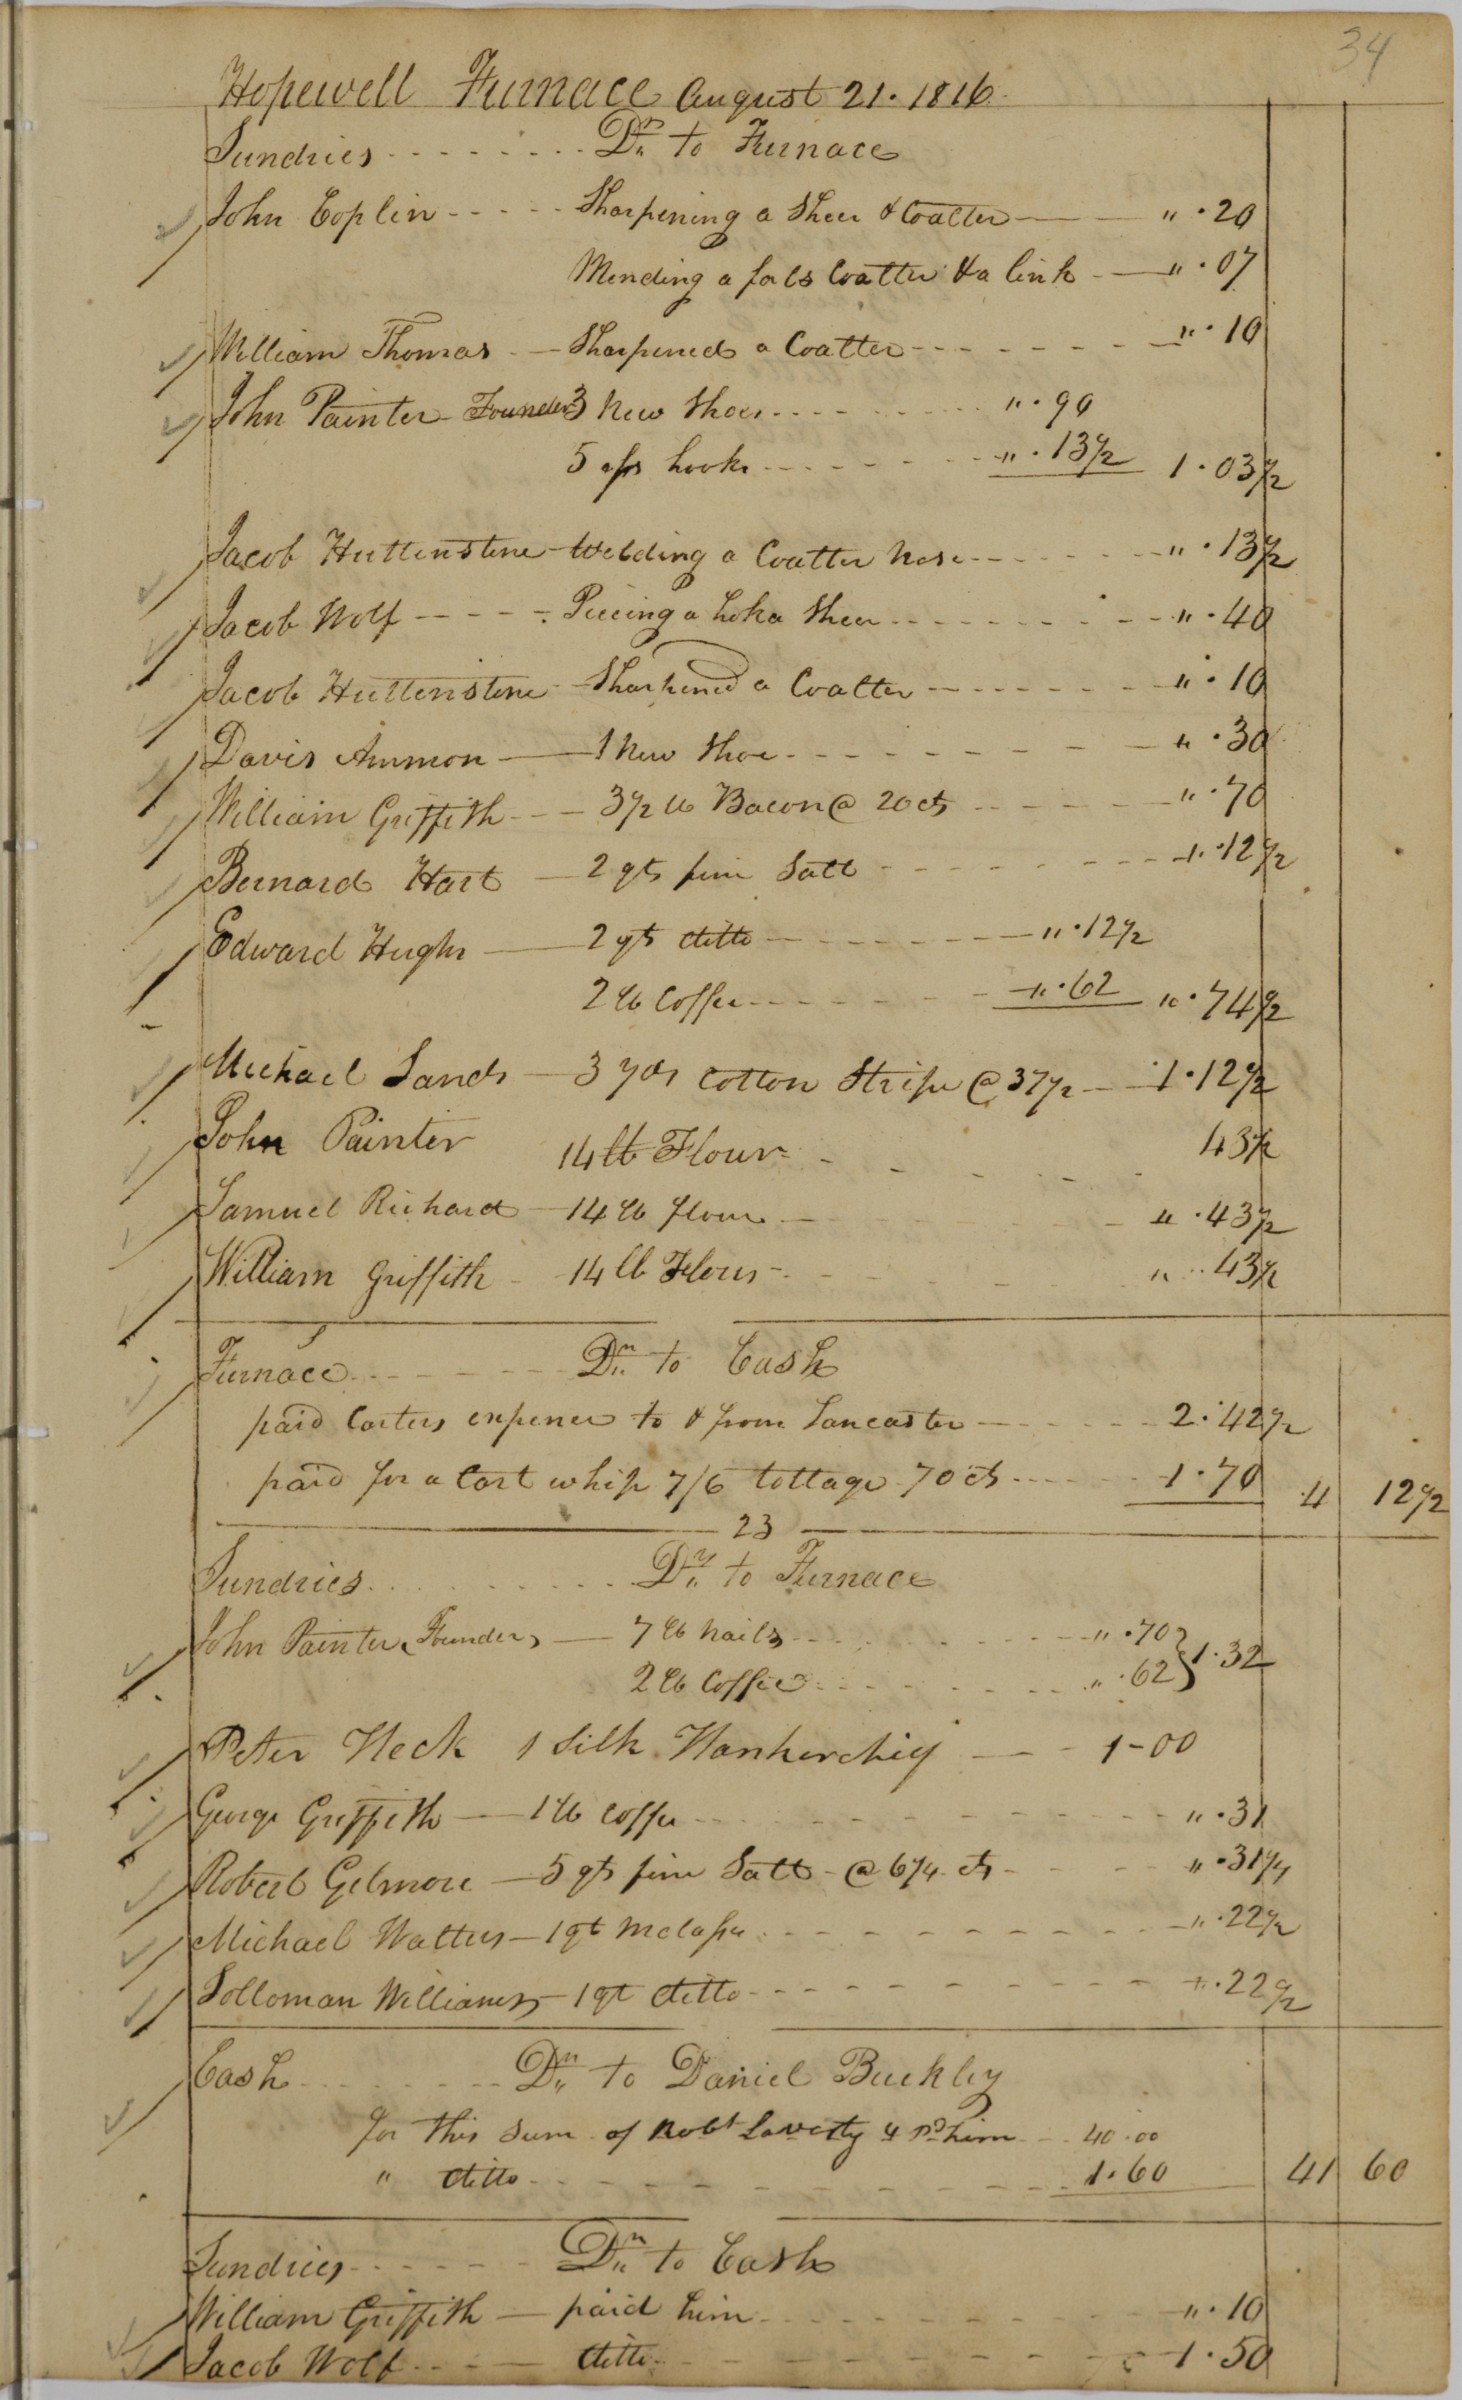 34
Hopewell Furnace August 21. 1816
Sundries - - - - - - - - - Dr. to Furnace
John Coplin - - - - - Sharpening a Sheer & Coalter — — ". 20
Mending a fals Coalter & a link - — ". 07
William Thomas - — Sharpened a Coalter - - - - - - - ". 10
John Painter Founder 3 New Shoes - - - - - - - - - ". 90
5 hooks - - - - - - - ". 13 1/2 1. 03 1/2
Jacob Huttenstine - Welding a Coalter Nose - - - - - - - ". 13 1/2
Jacob Wolf - - - - - Piecing a Sheer - - - - - - - - ". 40
Jacob Huttenstine - Sharpened a Coalter - - - - - - - ". 10
Davis Ammon — 1 New Shoe - - - - - - - - ". 30
William Griffith - - - 3 1/2 lb Bacon @ 20 cts - - - - - ". 70
Bernard Hart — 2 qts fine Salt - - - - - - - - ". 12 1/2
Edward Hughs — 2 qts ditto - - - - - - - ". 12 1/2
2 lb Coffee - - - - - - - ". 62 ". 74 1/2
Michael Sands — 3 yds Cotton Stripe @ 37 1/2 - - 1. 12 1/2
John Painter 14 lb Flour - - - - - 43 1/2
Samuel Richard - 14 lb flour - - - - - - ". 43 1/2
William Griffith - 14 lb Flour - - - - - - ". 43 1/2
Furnace - - - - - - - Dr. to Cash
paid Carters expences to & from Lancaster - - - - - - 2. 42 1/2
paid for a Cart whip 7/6 tollage 70 cts - - - - - 1. 70 4 12 1/2
23
Sundries - - - - - - - - - - Dr. to Furnace
John Painter, Founder, — 7 lb Nails - - - - - - - - - ". 70 } 1. 32
2 lb Coffee - - - - - - - - ". 62
Peter Heck 1 Silk Hankerchief — - - 1-00
George Griffith — 1 lb Coffee - - - - - - - - - - ". 31
Robert Gilmore — 5 qts fine Salt - @ 6 1/4 cts - - - - - ". 31 1/4
Michael Walters — 1 qt Molasses - - - - - - - - - ". 22 1/2
Solloman Williams — 1 qt ditto - - - - - - - - - ". 22 1/2
Cash - - - - - - - Dr. to Daniel Buckley
for this sum of Robt Laverty pd him - - 40. 00
" ditto - - - - - - - - - - 1. 60 41 60
Sundries - - - - - - Dr. to Cash
William Griffith — paid him - - - - - - - - - - ". 10
Jacob Wolf - - - — ditto - - - - - - - - - - 1. 50